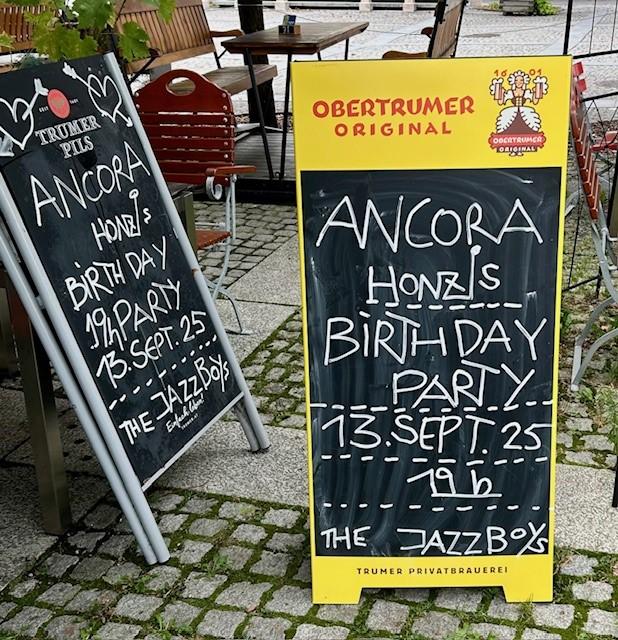 TRUMER
PILS
ANCORA
HONZIS
BIRTHDAY
19h PARTY
13. SEPT. 25
THE JAZZBOYS
OBERTRUMER
ORIGINAL
1601
OBERTRUMER
ORIGINAL
ANCORA
HONZIS
BIRTHDAY
PARTY
13. SEPT. 25
19 h
THE JAZZBOYS
TRUMER PRIVATBRAUEREI